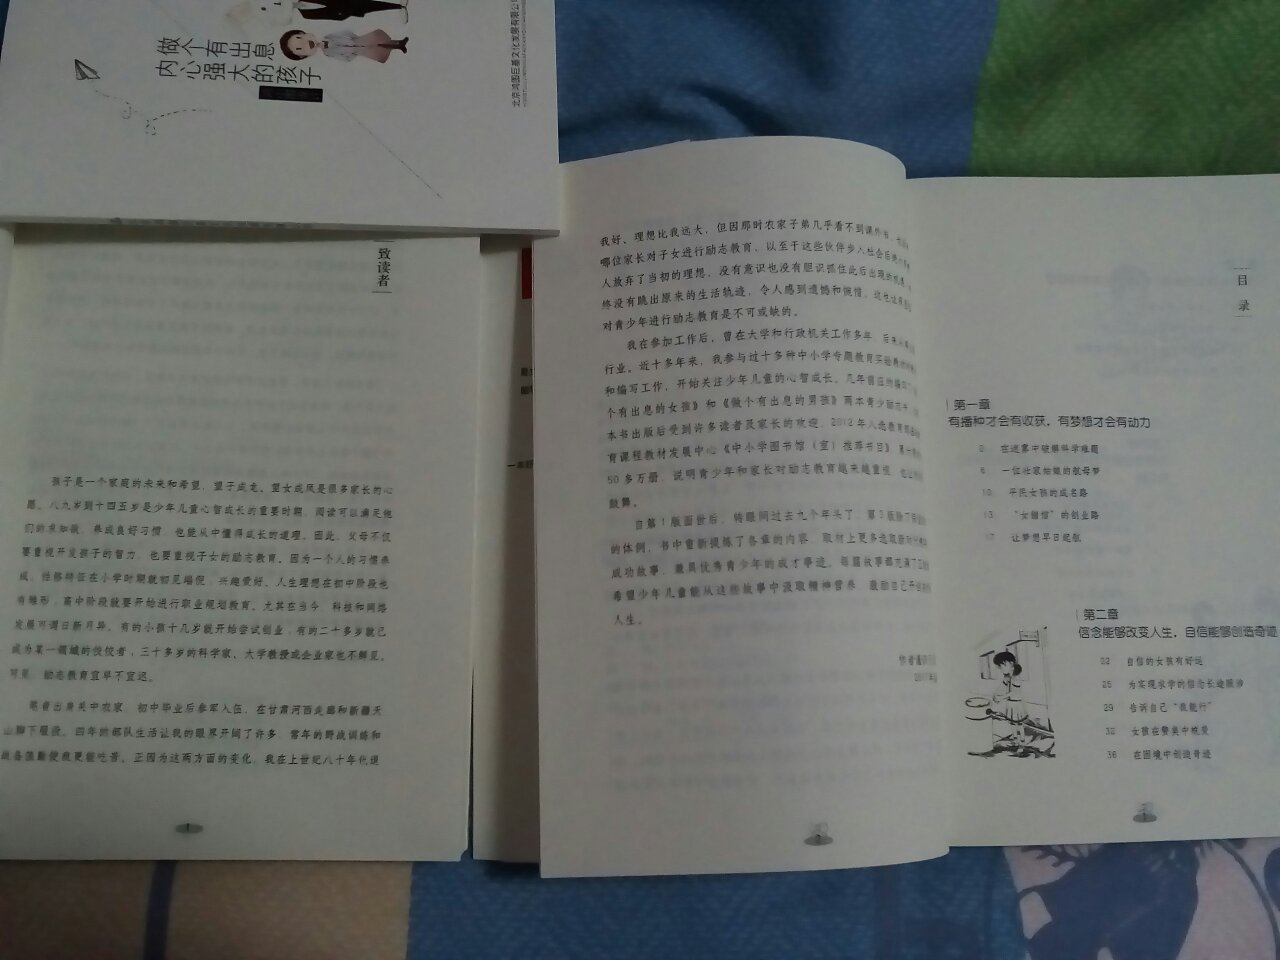 做个有出息
内心强大的孩子
北京鸿图巨基文化发展有限公司
致读者
孩子是一个家庭的未来和希望，望子成龙、望女成凤是很多家长的心
愿。八九岁到十四五岁是少年儿童心智成长的重要时期，阅读可以满足他
们的求知欲，养成良好习惯，也能从中懂得成长的道理。因此，父母不仅
要重视开发孩子的智力，也要重视子女的励志教育。因为一个人的习惯养
成、性格特征在小学时期就初见端倪，兴趣爱好、人生理想在初中阶段也
有雏形，高中阶段就要开始进行职业规划教育。尤其在当今，科技和网络
发展可谓日新月异。有的小孩十几岁就开始尝试创业，有的二十多岁就已
成为某一领域的佼佼者，三十多岁的科学家、大学教授或企业家也不鲜见。
可见，励志教育宜早不宜迟。
笔者出身关中农家，初中毕业后参军入伍，在甘肃河西走廊和新疆天
山脚下服役。四年的部队生活让我的眼界开阔了许多，常年的野战训练和
战备值勤使我更能吃苦。正因为这两方面的变化，我在上世纪八十年代退
1
我好、理想比我远大，但因那时农家子弟几乎看不到课外书，
哪位家长对子女进行励志教育，以至于这些伙伴步入社会后
人放弃了当初的理想，没有意识也没有胆识抓住此后出现的机遇，
终没有跳出原来的生活轨迹，令人感到遗憾和惋惜。这也让我
对青少年进行励志教育是不可或缺的。
我在参加工作后，曾在大学和行政机关工作多年，后来
行业。近十多年来，我参与过十多种中小学专题教育实验教材
和编写工作，开始关注少年儿童的心智成长。几年前应约编
个有出息的女孩》和《做个有出息的男孩》两本青少励志书，
本书出版后受到许多读者及家长的欢迎，2012年入选教育部
育课程教材发展中心《中小学图书馆（室）推荐书目》，第一
50多万册，说明青少年和家长对励志教育越来越重视，也让
鼓舞。
自第1版面世后，转眼间过去九个年头了，第3版除了
的体例，书中重新提炼了各章的内容，取材上更多选取
成功故事，兼具优秀青少年的成才事迹，每篇故事都充满了正
希望少年儿童能从这些故事中汲取精神营养，激励自己开创
人生。
作者
2
目录
第一章
有播种才会有收获，有梦想才会有动力
在迷雾中破解科学难题
6 一位壮家姑娘的航母梦
10 平民女孩的成名路
13 “女翻馆”的创业路
17 让梦想早日起航
第二章
信念能够改变人生，自信能够创造奇迹
22 自信的女孩有好运
25 为实现求学的信念长途跋涉
29 告诉自己“我能行”
32 女孩在赞美中蜕变
36 在困境中创造奇迹
1